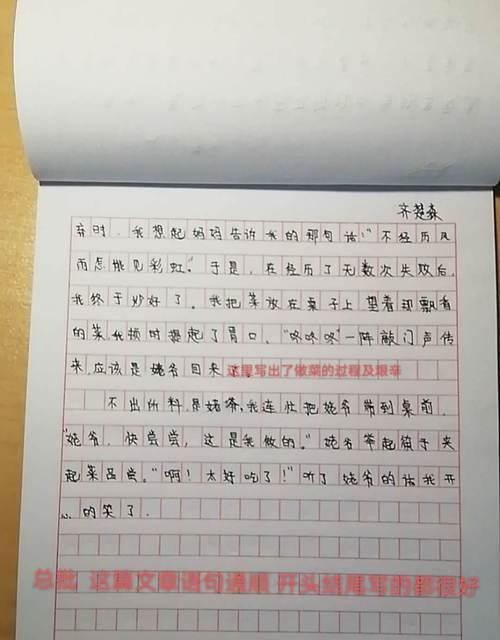 齐楚森
弃时，我想起妈妈告诉我的那句话:"不经历风
雨怎能见彩虹。"于是，在经历了无数次失败后，
我终于炒好了。我把菜放在桌子上望着那飘香
的菜我顿时提起了胃口，"咚咚咚"一阵敲门声传
来，应该是姥爷回来了。这里写出了做菜的过程及艰辛
不出所料是姥爷，我连忙把姥爷带到桌前，
"姥爷，快尝尝，这是我做的。"姥爷拿起筷子夹
起菜品尝。"啊！太好吃了！"听了姥爷的话我开
心的笑了.
总批 这篇文章语句通顺 开头结尾写的都很好